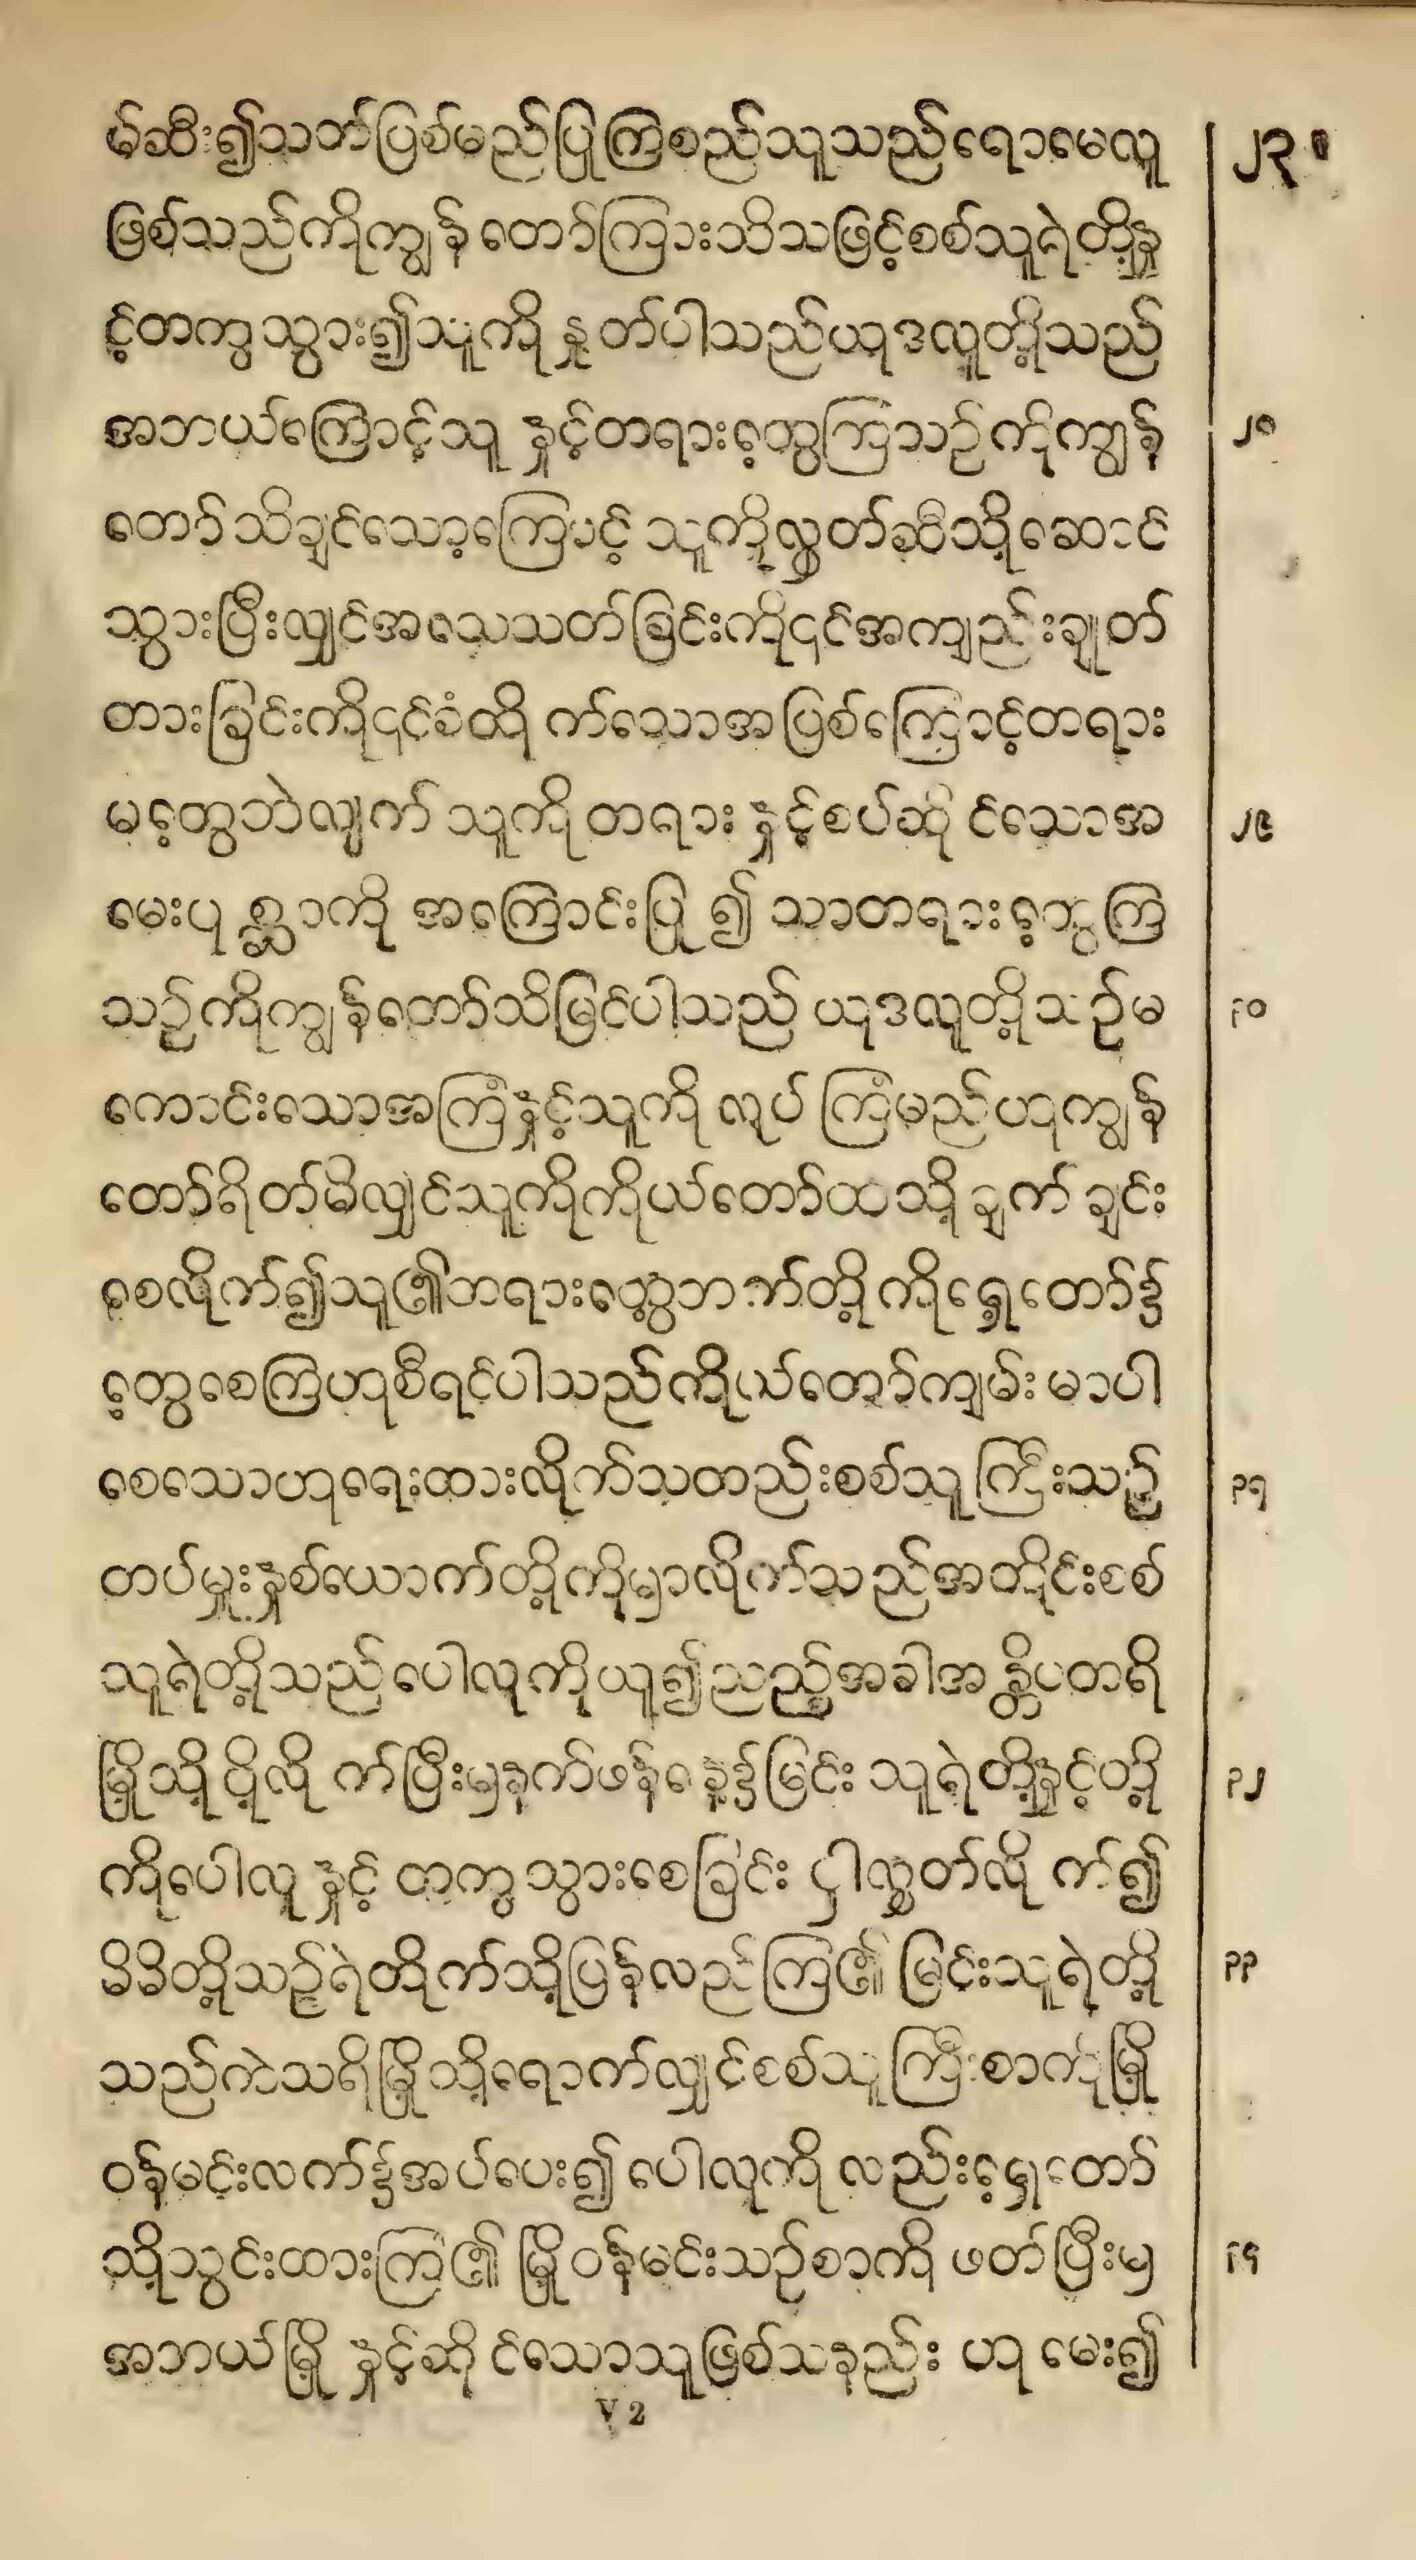 မ်ဆီး၍သတ်ပြစ်မည်ပြုကြစည်သူသည်ရောမေလူ ၂၃
ဖြစ်သည်ကိုကျွန်တော်ကြားသိသဖြင့်စစ်သူရဲတို့နှ
င့်တကွသွား၍သူကိုနှုတ်ပါသည်ယုဒလူတို့သည်
အဘယ်ကြောင့်သူနှင့်တရားတွေ့ကြသည်ကိုကျွန် ၂၈
တော်သိချင်သော့ကြောင့်သူကိုလွှတ်ဆီသို့ဆောင်
သွားပြီးလျှင်အသေသတ်ခြင်းကို၎င်အကျည်းချုတ်
တားခြင်းကို၎င်ခံထိုက်သောအပြစ်ကြောင့်တရား
မတွေ့ဘဲလျက်သူကိုတရားနှင့်စပ်ဆိုင်သောအ ၂၉
မေးပုစ္ဆာကိုအကြောင်းပြု၍သာတရားတွေ့ကြ
သည်ကိုကျွန်တော်သိမြင်ပါသည်ယုဒလူတို့သည်မ ၃၀
ကောင်းသောအကြံနှင့်သူကိုလုပ်ကြံမည်ဟုကျွန်
တော်ရိတ်မိလျှင်သူကိုကိုယ်တော်ထသို့ချက်ချင်း
စေလိုက်၍သူ၏ဘရားတွေ့ဘက်တို့ကိုရှေ့တော်၌
တွေ့စေကြဟုစီရင်ပါသည်ကိုယ်တော်ကျမ်းမာပါ
စေသောဟုရေးထားလိုက်သတည်းစစ်သူကြီးသည် ၃၁
တပ်မှူးနှစ်ယောက်တို့ကိုမှာလိုက်သည်အတိုင်းစစ်
သူရဲတို့သည်ပေါလုကိုယူ၍ညည့်အခါအန္တိပတရိ
မြို့သို့ပို့လိုက်ပြီးမှနက်ဖန်နေ့၌မြင်းသူရဲတို့နှင့်တို့ ၃၂
ကိုပေါလုနှင့်တကွသွားစေခြင်းငှါလွှတ်လိုက်၍
မိမိတို့သည်ရဲတိုက်သို့ပြန်လည်ကြ၏မြင်းသူရဲတို့ ၃၃
သည်ကဲသရိမြို့သို့ရောက်လျှင်စစ်သူကြီးစာကိုမြို့
ဝန်မင်းလက်၌အပ်ပေး၍ပေါလုကိုလည်းရှေ့တော်
သို့သွင်းထားကြ၏မြို့ဝန်မင်းသည်စာကိုဖတ်ပြီးမှ ၃၄
အဘယ်မြို့နှင့်ဆိုင်သောသူဖြစ်သနည်းဟုမေး၍
V 2